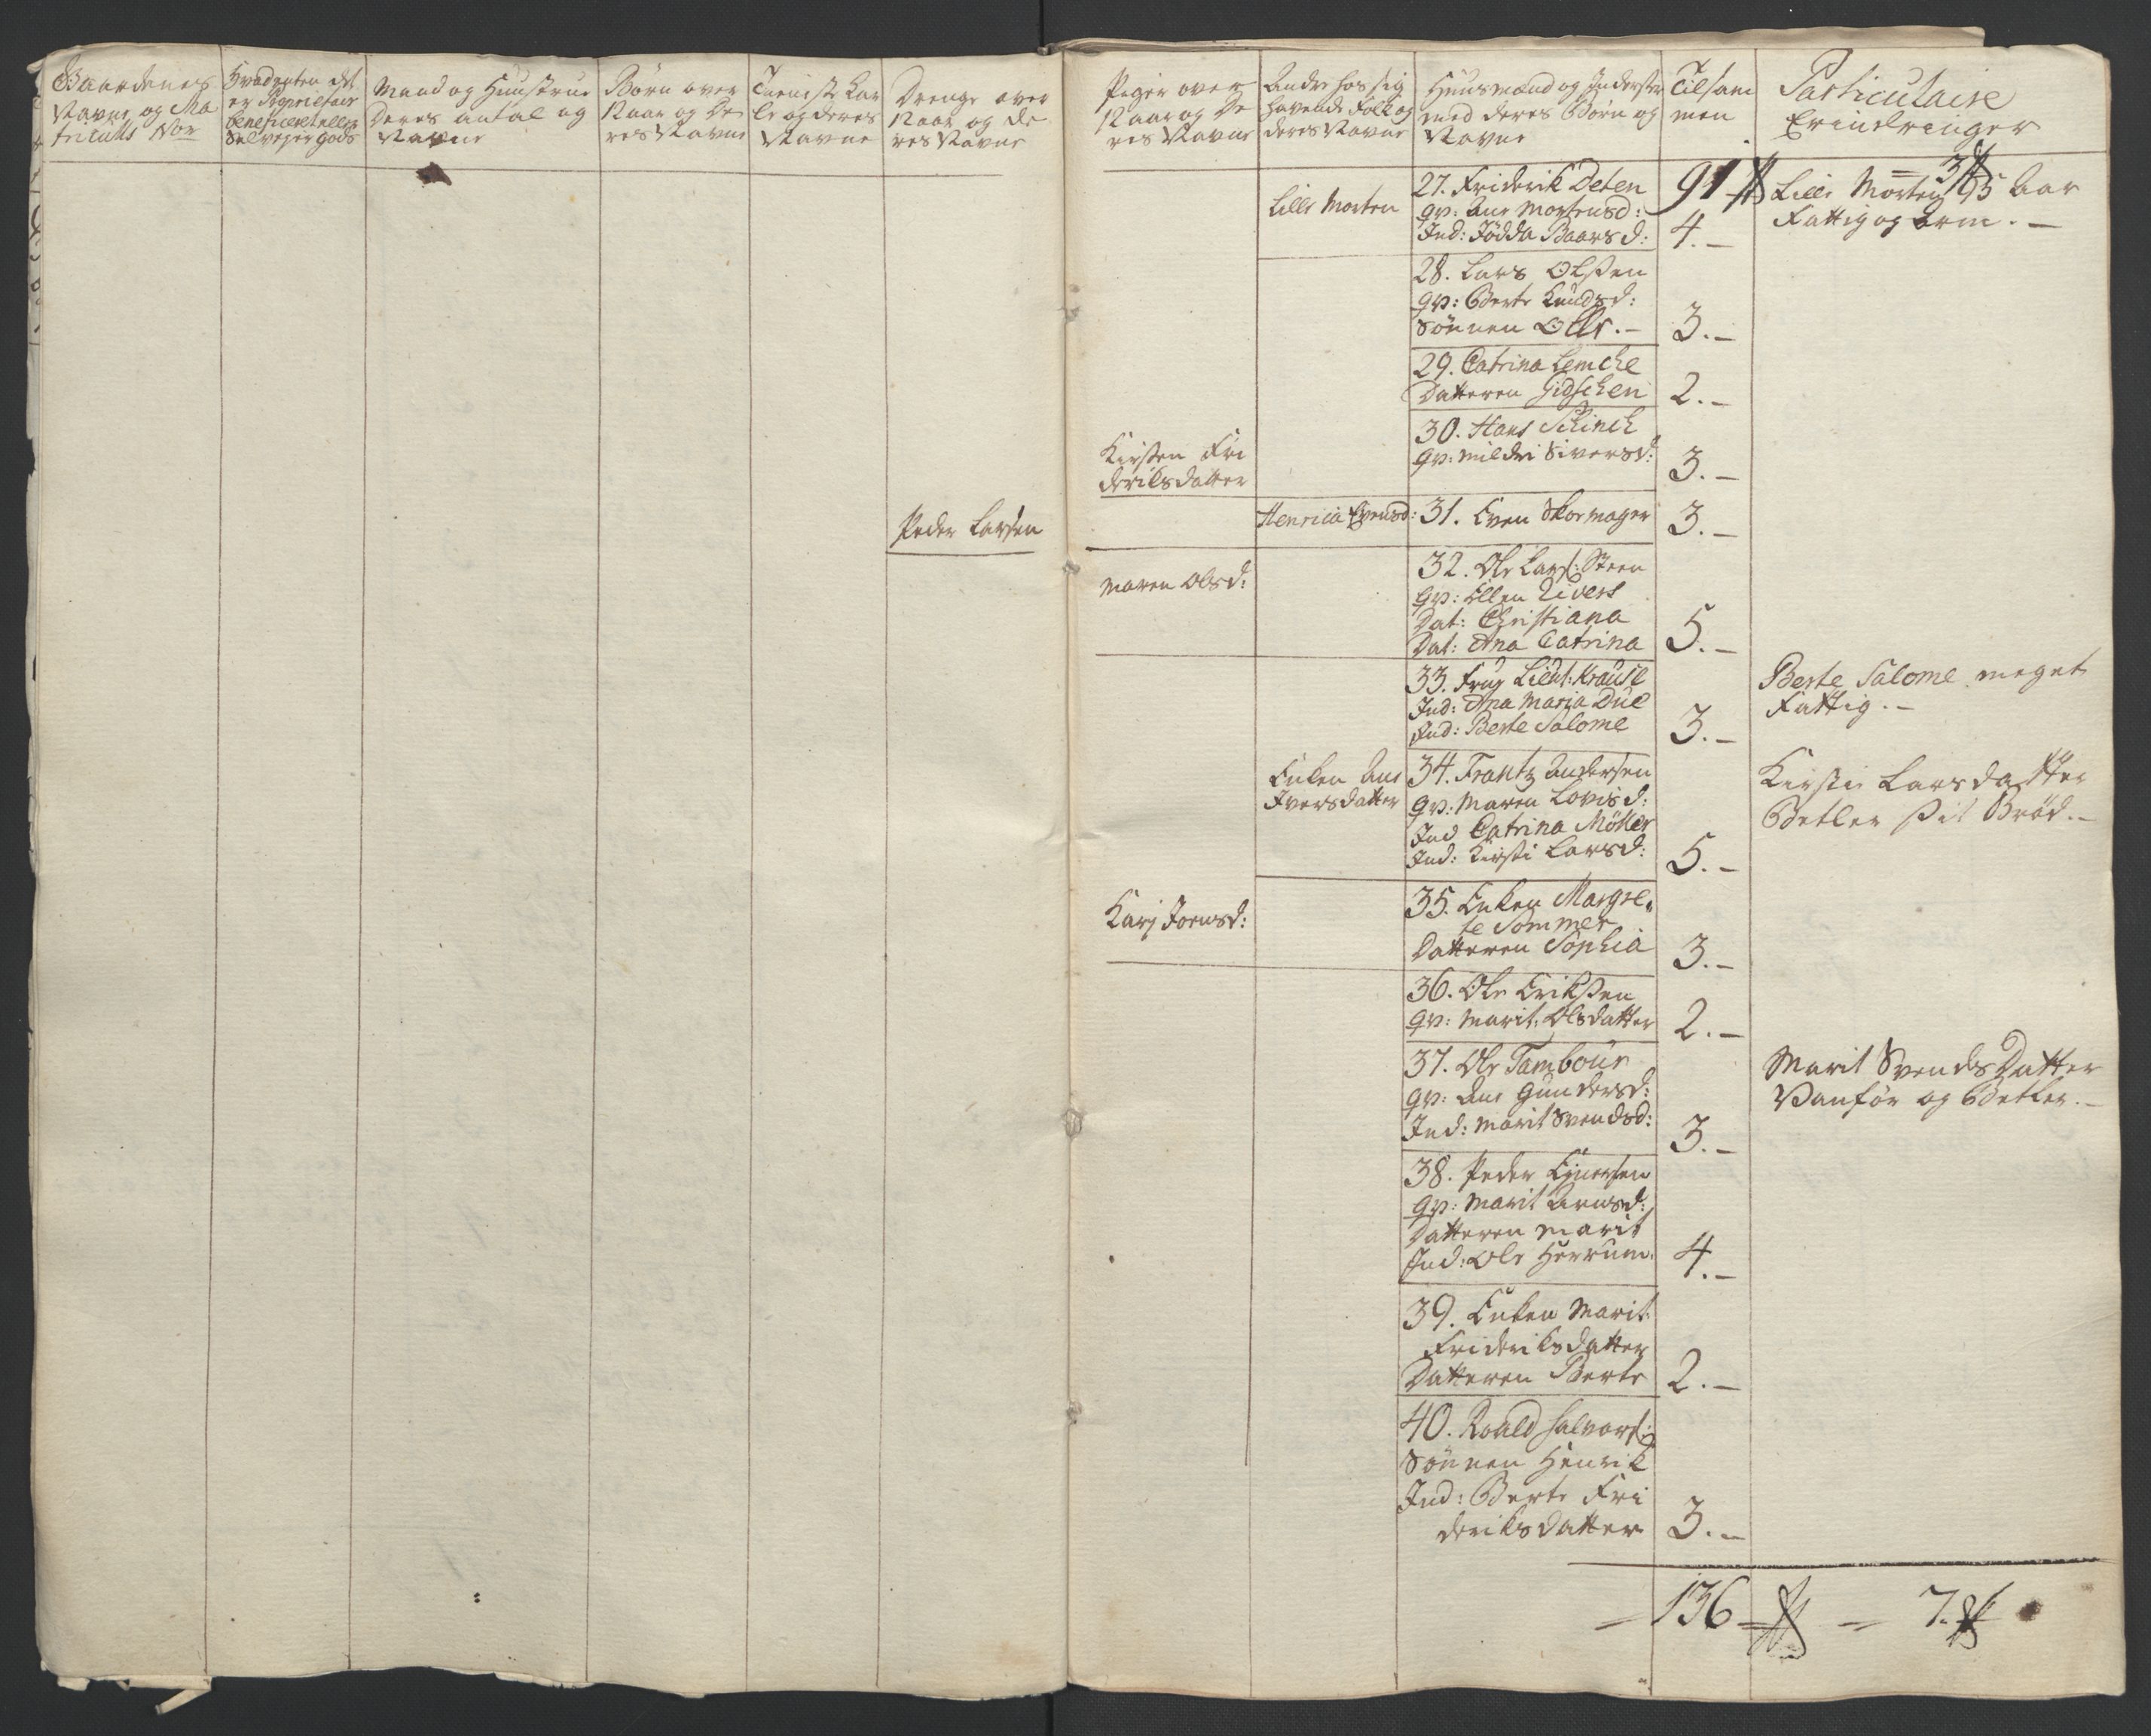 Gaardenes
Navne og Ma
triculs Nor
Hvad enten det
er Proprietair
beneficeret eller
Selveyer gods
Mand og Huustrue
Deres antal og
Navne
Børn over
12 aar og De
res Navne
Tieniste Kar
le og deres
Navne
Drenge over
12 aar og De
res Navne
Peder Larsen
Piger over
12 aar og De
res Navne
Andre hos sig
havende Folk og
deres Navne
Huusmænd og Inderster
med deres Børn og
Navne
Tilsam
men
Particulaire
Erindringer
Lille Morten
27. Friderik Deten
qv: Ane Mortensd:
Ind: Jødda Baarsd:
91
4.-
3
Lille Morten 95 Aar
Fattig og Arm.-
28. Lars Olsen
qv: Berte Knudsd:
Sønnen Olle.-
3.-
29. Catrina Lemche
Datteren Gidschen
2.-
Kirsten Fri
deriksdatter
30. Hans Schinch
qv: Mildri Siversd:
3.-
Henrica Evensd:
31. Even Skormager
3.-
Maren Olsd:
32. Ole Lars: Steen
qv: Ellen Sivers
Dat: Christiana
Dat: Ana Catrina
5.-
33. Frug Lieut: Krause
Ind: Ana Maria Due
Ind: Berte Salome
3.-
Berte Salome meget
Fattig.-
Enken Ane
Iversdatter
34. Frantz Andersen
qv: Maren Lovisd:
Ind Catrina Möller
Ind: Kirsti Larsd:
5.-
Kirsti Larsdatter
Betler sit Brød.-
Karj Joensd:
35. Enken Margre„
te Sommer
Datteren Sophia
3.-
36. Ole Eriksen
qv: Marit Olsdatter
2.-
37. Ole Tambour
qv: Ane Gundersd:
Ind: Marit Svendsd:
3.-
Marit Svends Datter
Vanfør og Betler.-
38. Peder Einersen
qv: Marit Arnsd:
Datteren Marit
Ind: Ole Herrum.
4.-
39. Enken Marit
Frideriksdatter
Datteren Berte
2.-
40. Roald Halvors:
Sønnen Henrik
Ind: Berte Fri
deriksdatter
3.-
136 - 7.